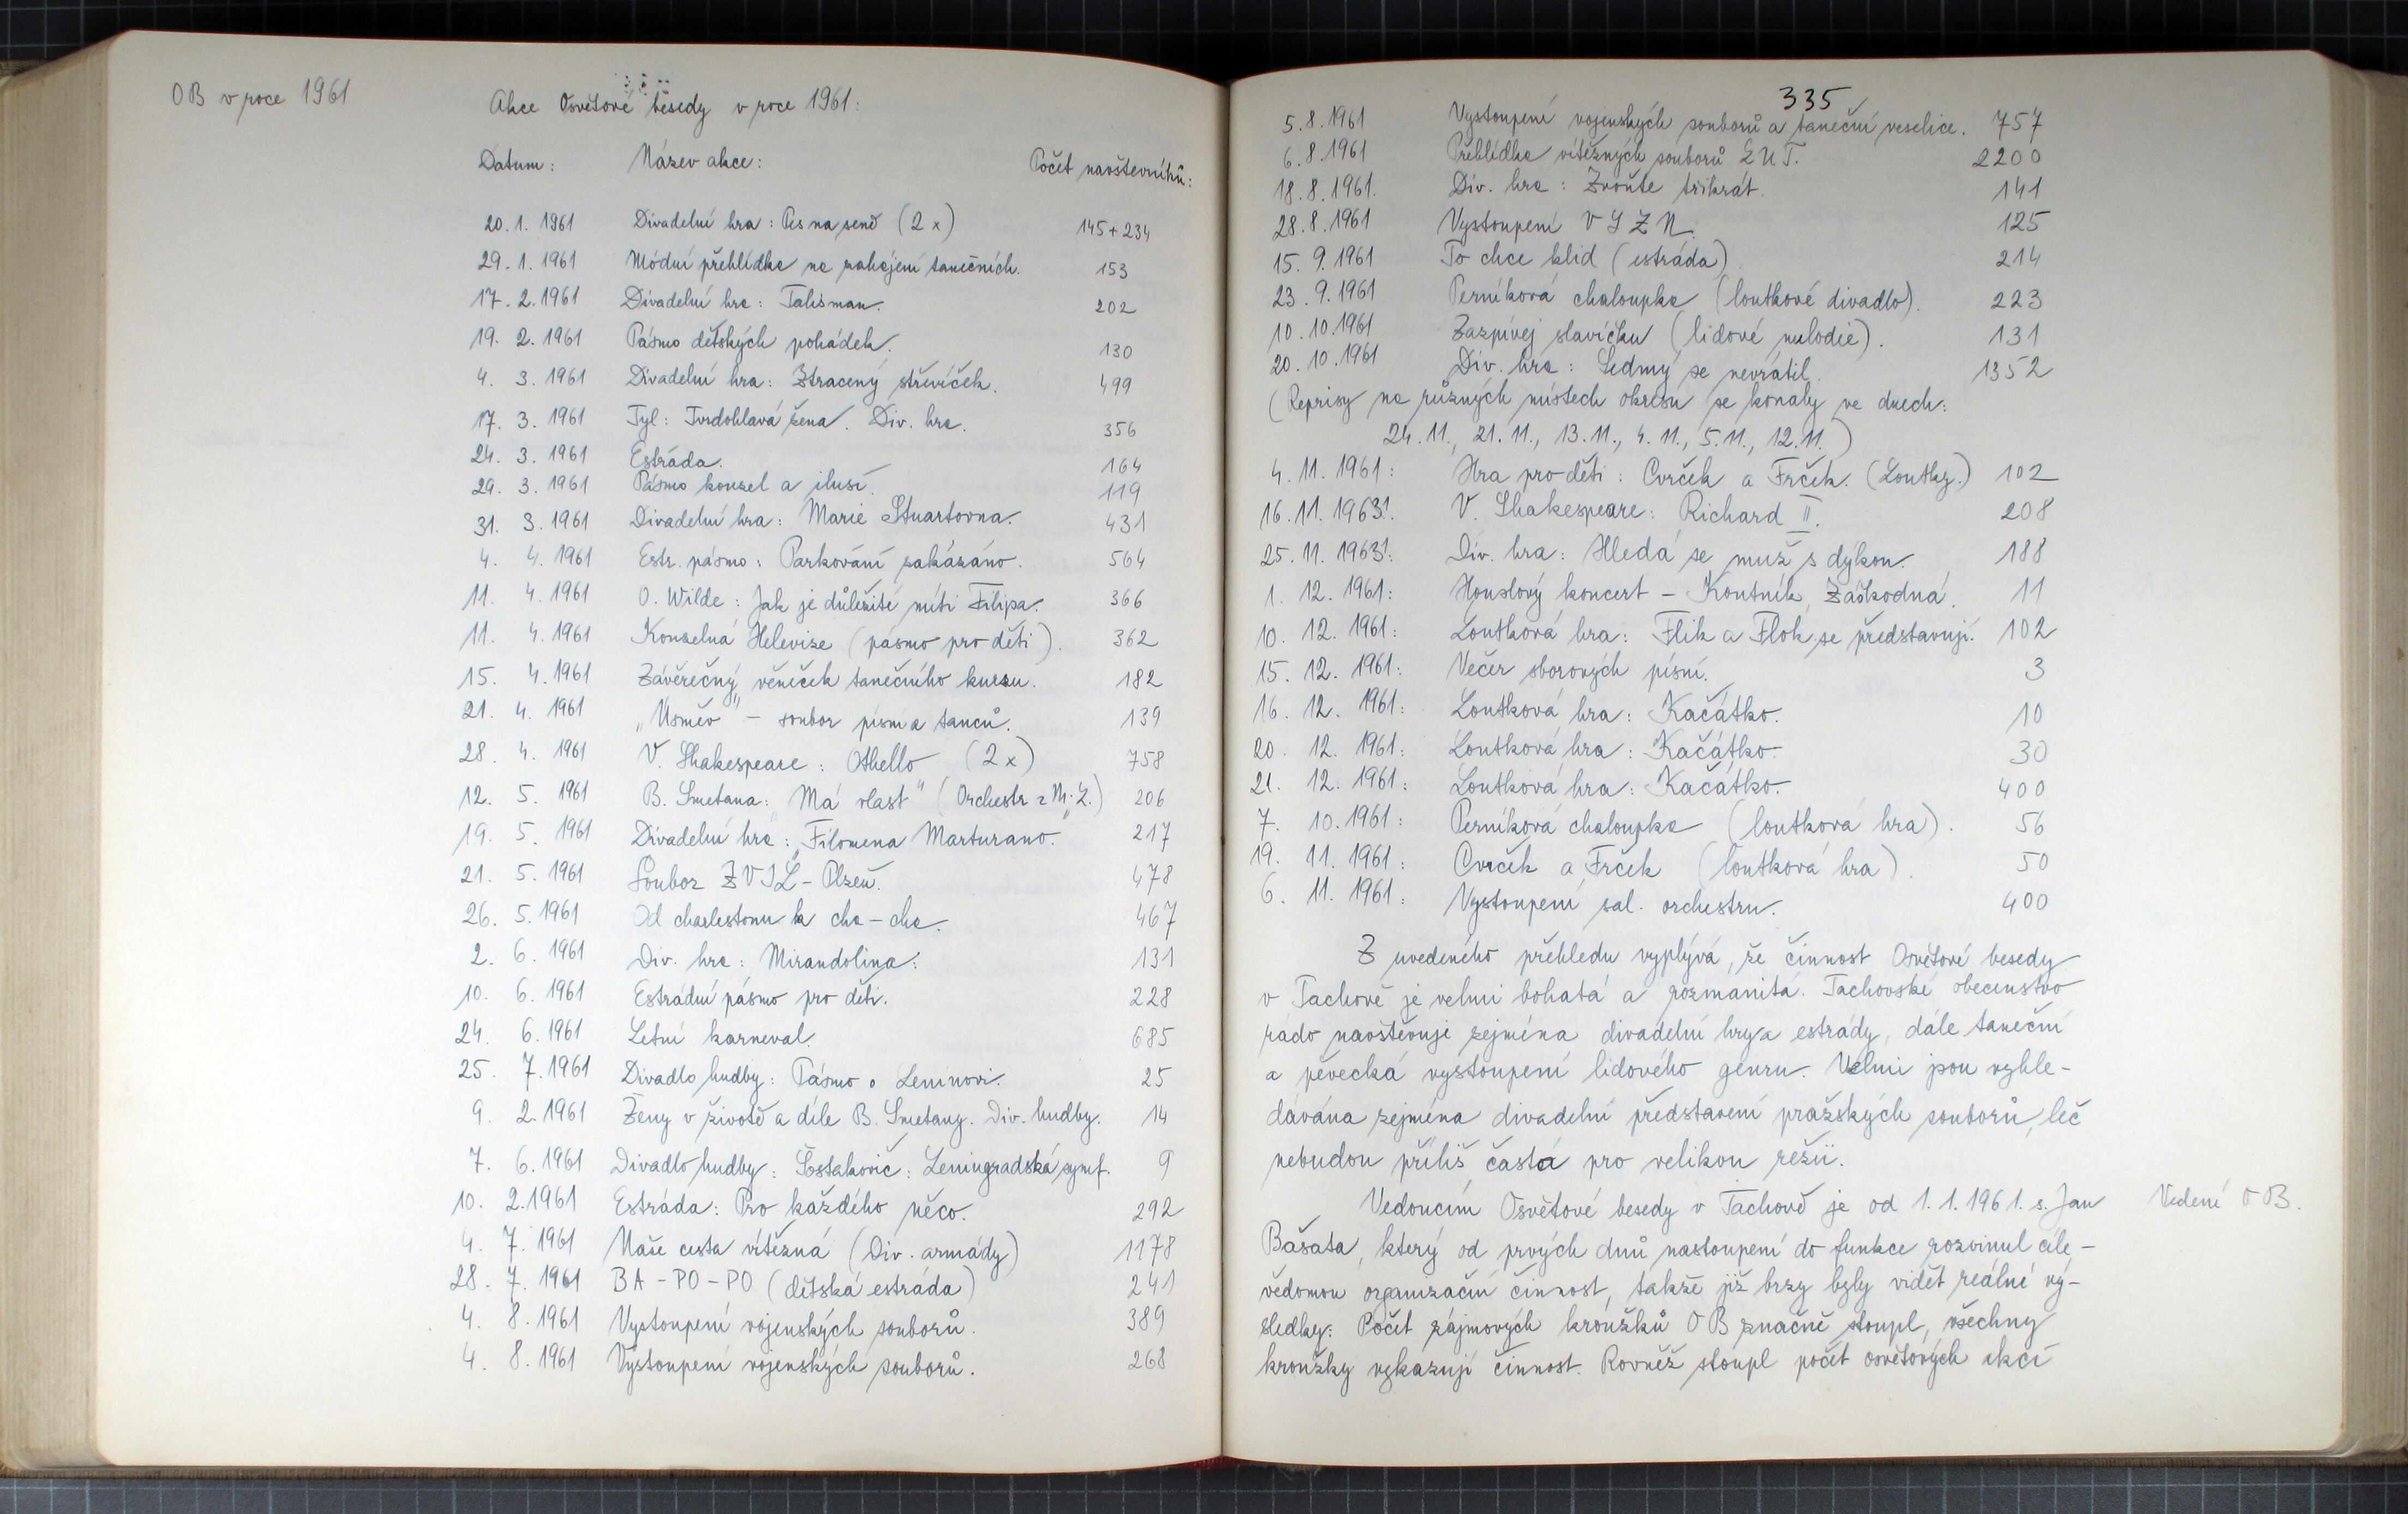 OB v roce 1961
Akce Osvětové besedy v roce 1961:
Datum: Název akce: Počet navštevníků:
20. 1. 1961 Divadelní hra: Pes na seně (2x) 145+234
29. 1. 1961 Módní přehlídka na zahájení tanečních. 153
17. 2. 1961 Divadelní hra: Talisman. 202
19. 2. 1961 Pásmo dětských pohádek. 130
4. 3. 1961 Divadelní hra: Ztracený střevíček. 499
17. 3. 1961 Tyl: Tvrdohlavá žena. Div. hra. 356
24. 3. 1961 Estráda. 164
29. 3. 1961 Pásmo kouzel a ilusí. 119
31. 3. 1961 Divadelní hra: Marie Stuartovna. 431
4. 4. 1961 Estr. pásmo: Parkování zakázáno. 564
11. 4. 1961 O. Wilde: Jak je důležité míti Filipa. 366
11. 4. 1961 Kouzelná Helevize (pásmo pro děti). 362
15. 4. 1961 Závěrečný věneček tanečního kursu. 182
21. 4. 1961 „Úsměv" - soubor písní a tanců. 139
28. 4. 1961 V. Shakespeare: Othello (2x) 758
12. 5. 1961 B. Smetana: „Má vlast" (Orchestr z M. L.) 206
19. 5. 1961 Divadelní hra: „Filomena Marturano." 217
21. 5. 1961 Soubor ZVIL - Plzeň. 478
26. 5. 1961 Od charlestonu k cha-cha. 467
2. 6. 1961 Div. hra: Mirandolina: 131
10. 6. 1961 Estrádní pásmo pro děti. 228
24. 6. 1961 Letní karneval. 685
25. 7. 1961 Divadlo hudby: Pásmo o Leninovi. 25
9. 2. 1961 Ženy v životě a díle B. Smetany. Div. hudby. 14
7. 6. 1961 Divadlo hudby: Šostakovič: Leningradská symf. 9
10. 2. 1961 Estráda: Pro každého něco. 292
4. 7. 1961 Naše cesta vítězná (Div. armády) 1178
28. 7. 1961 BA-PO-PO (dětská estráda) 241
4. 8. 1961 Vystoupení vojenských souborů. 389
4. 8. 1961 Vystoupení vojenských souborů. 268
335
5. 8. 1961 Vystoupení vojenských souborů a taneční veselice. 757
6. 8. 1961 Přehlídka vítězných souborů LUT. 2200
18. 8. 1961. Div. hra: Zvoňte třikrát. 141
28. 8. 1961 Vystoupení VSŽN. 125
15. 9. 1961 To chce klid (estráda). 214
23. 9. 1961 Perníková chaloupka (loutkové divadlo). 223
10. 10. 1961 Zazpívej slavíčku (lidové melodie). 131
20. 10. 1961 Div. hra: Sedmý se nevrátil. 1352
(Reprisy na různých místech okresu se konaly ve dnech:
24. 11., 21. 11., 13. 11., 4. 11., 5. 11., 12. 11.)
4. 11. 1961: Hra pro děti: Cvrček a Frček. (Loutky.) 102
16. 11. 1961: V. Shakespeare: Richard II. 208
25. 11. 1961: Div. hra: Hledá se muž s dýkou. 188
1. 12. 1961: Houslový koncert - Koutník, Záškodná. 11
10. 12. 1961: Loutková hra: Flik a Flok se představují. 102
15. 12. 1961: Večer sborových písní. 3
16. 12. 1961: Loutková hra: Kačátko. 10
20. 12. 1961: Loutková hra: Kačátko. 30
21. 12. 1961: Loutková hra: Kačátko. 400
7. 10. 1961: Perníková chaloupka (loutková hra). 56
19. 11. 1961: Cvrček a Frček (loutková hra). 50
6. 11. 1961: Vystoupení sal. orchestru. 400
Z uvedeného přehledu vyplývá, že činnost Osvětové besedy
v Tachově je velmi bohatá a rozmanitá. Tachovské obecenstvo
rádo navštěvuje zejména divadelní hry a estrády, dále taneční
a pěvecká vystoupení lidového genru. Velmi jsou vyhle-
dávána zejména divadelní představení pražských souborů, leč
nebudou příliš častá pro velikou režii.
Vedoucím Osvětové besedy v Tachově je od 1. 1. 1961. s. Jan
Vedení OB.
Bašata, který od prvých dnů nastoupení do funkce rozvinul cíle-
vědomou organizační činnost, takže již brzy byly vidět reálné vý-
sledky. Počet zájmových kroužků OB značně stoupl, všechny
kroužky vykazují činnost. Rovněž stoupl počet osvětových akcí